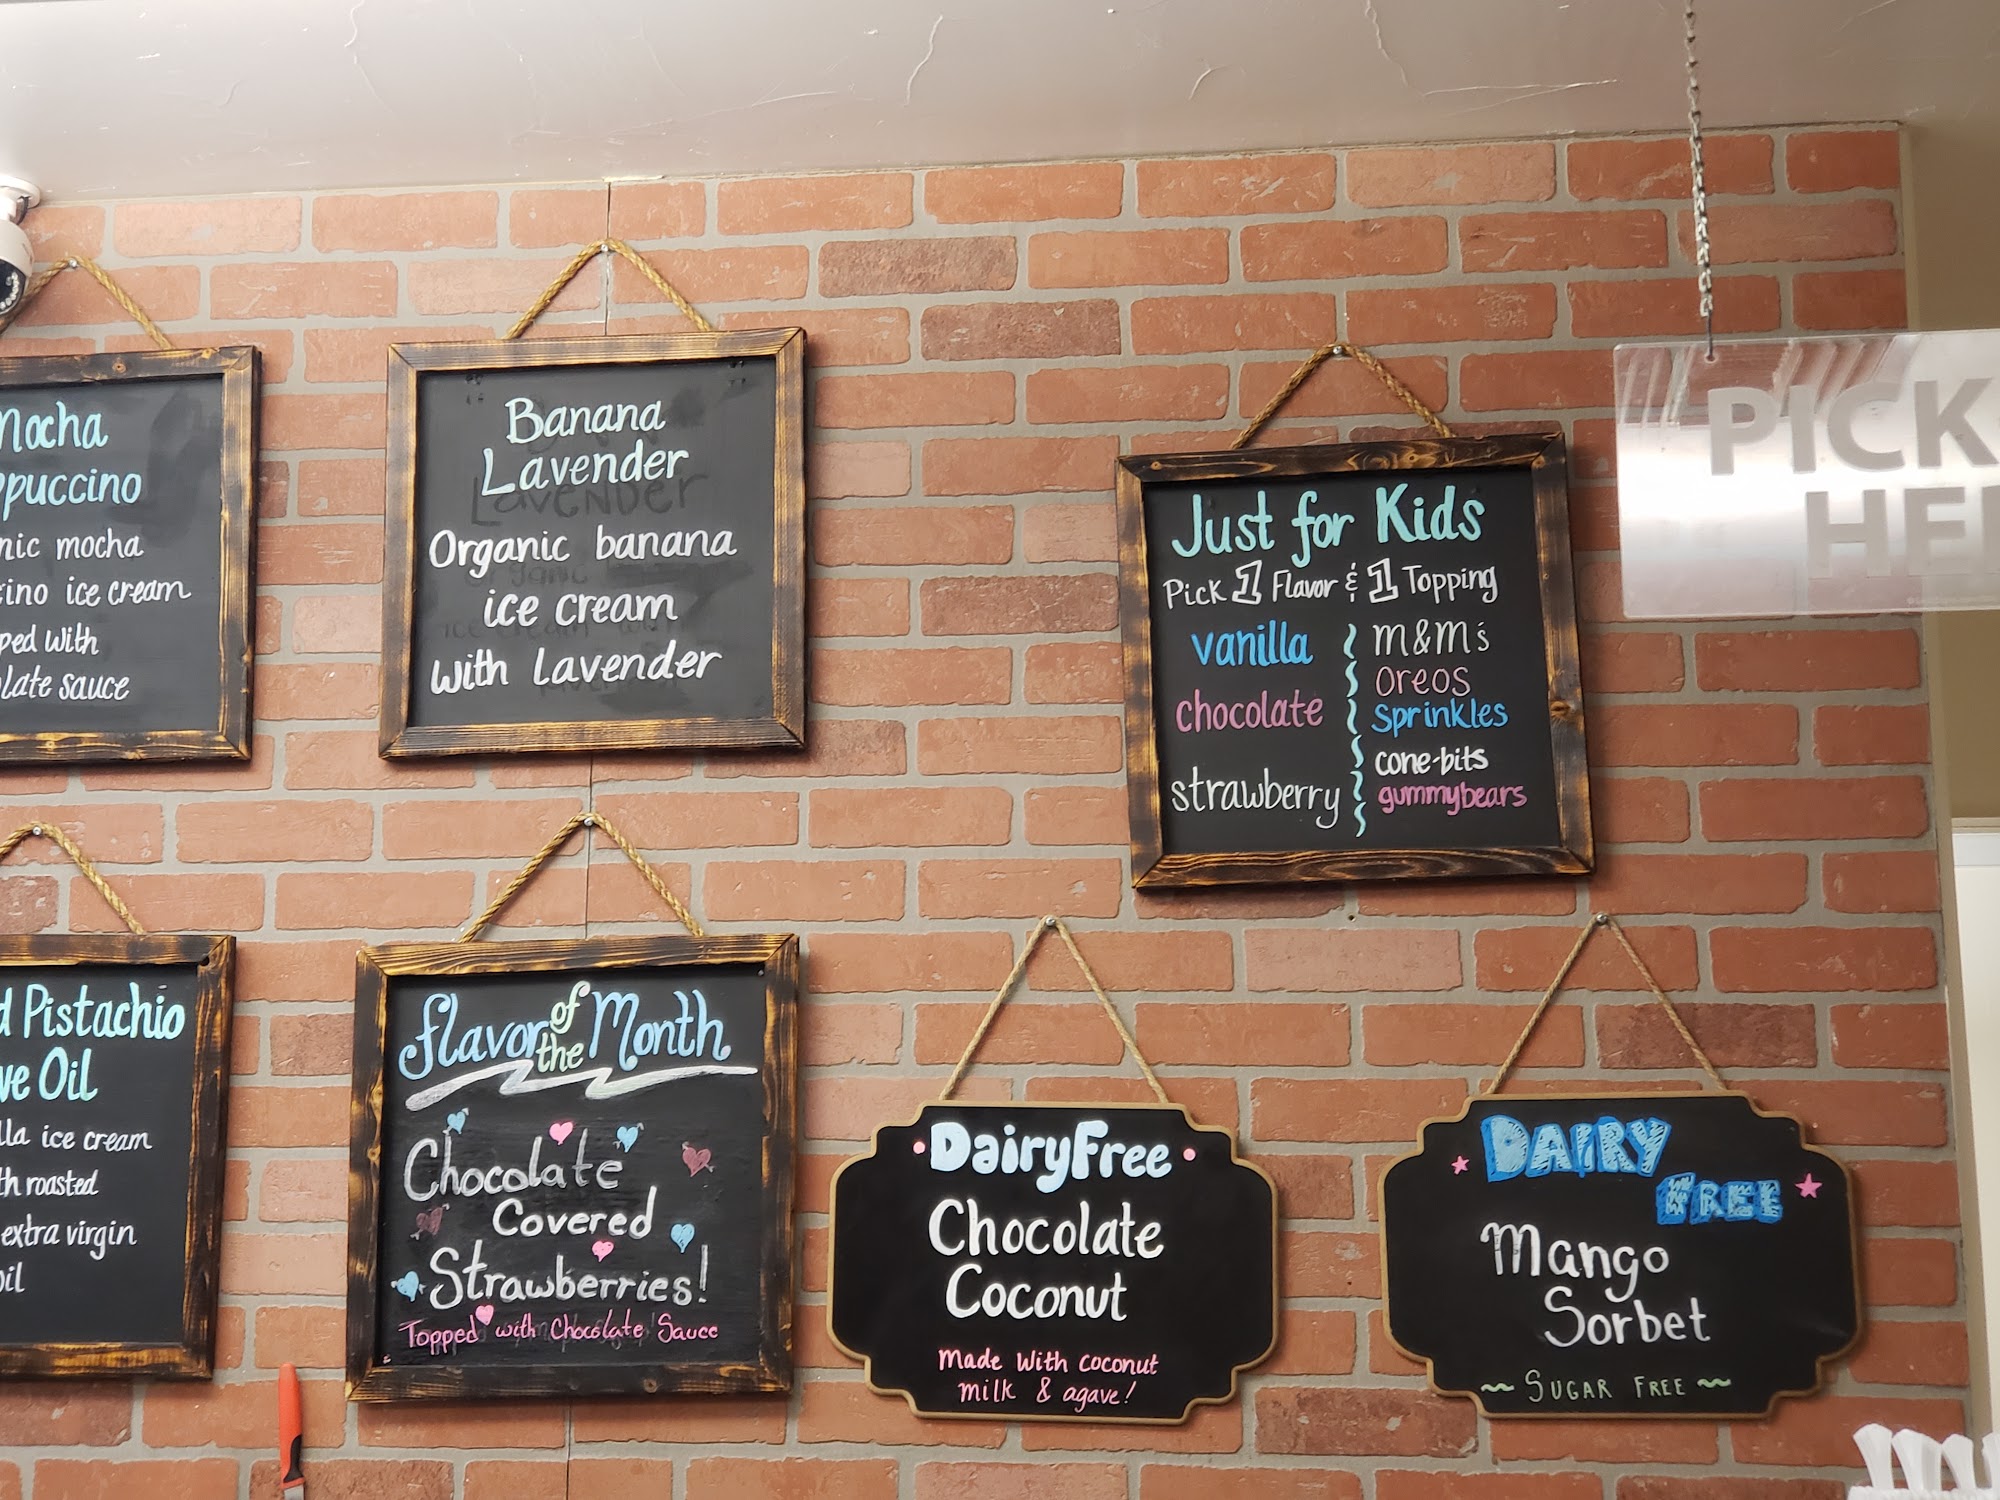 Mocha
ppuccino
nic mocha
cino ice cream
ped with
late sauce
Banana
Lavender
Organic banana
ice cream
with Lavender
Just for Kids
Pick 1 Flavor & 1 Topping
vanilla
chocolate
strawberry
M&M's
Oreos
Sprinkles
cone-bits
gummybears
PICK
HE
d Pistachio
ve Oil
lla ice cream
th roasted
extra virgin
oil
flavor of the Month
Chocolate
Covered
Strawberries!
Topped with Chocolate Sauce
DairyFree
Chocolate
Coconut
Made with coconut
milk & agave!
DAIRY
FREE
Mango
Sorbet
~ SUGAR FREE ~